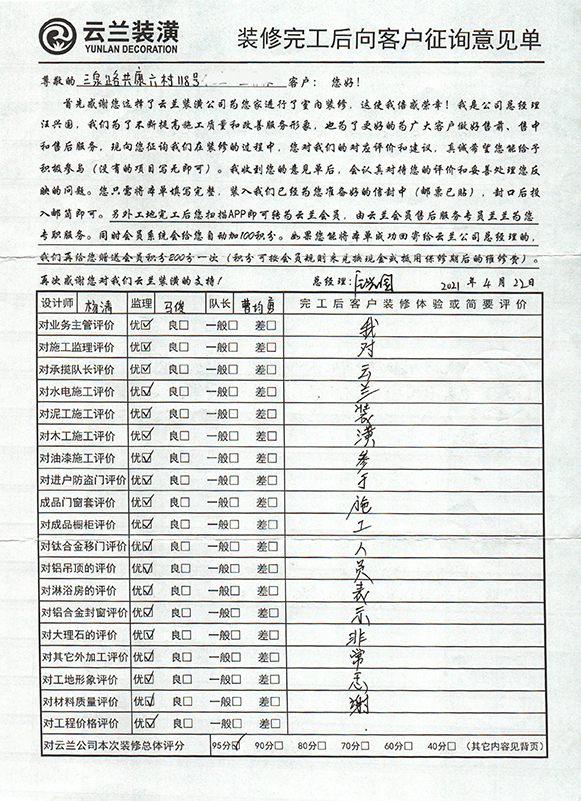 云兰装潢
YUNLAN DECORATION
装修完工后向客户征询意见单
尊敬的 三泉路共康六村118号 客户：您好！
首先感谢您选择了云兰装潢公司为您家进行了室内装修，这使我倍感荣幸！我是公司总经理
汪兴国，我们为了不断提高施工质量和改善服务形象，也为了更好的为广大客户做好售前、售中
和售后服务，现向您征询我们在装修的过程中，您对我们的对应评价和建议，真诚希望您能给予
积极参与（没有的项目写无即可）。我收到您的意见单后，会认真对待您的评价和妥善处理您反
映的问题。您只需将本单填写完整，装入我们已经为您准备好的信封中（邮票已贴），封口后投
入邮筒即可。另外工地完工后您扫描APP即可转为云兰会员，由云兰会员售后服务专员兰兰为您
专职服务。同时会员系统会给您自动加100积分。如果您能将本单成功回寄给云兰公司总经理的，
我们再给您赠送会员积分200分一次（积分可按会员规则来兑换现金或抵用保修期后的维修费）。
再次感谢您对我们云兰装潢的支持！ 总经理：汪兴国 2021 年 4 月 22日
设计师 杨清 监理 马俊 队长 曹均勇 完工后客户装修体验或简要评价
对业务主管评价 优☑ 良☐ 一般☐ 差☐ 我
对施工监理评价 优☑ 良☐ 一般☐ 差☐ 对
对承揽队长评价 优☑ 良☐ 一般☐ 差☐ 云
对水电施工评价 优☑ 良☐ 一般☐ 差☐ 兰
对泥工施工评价 优☑ 良☐ 一般☐ 差☐ 装
对木工施工评价 优☑ 良☐ 一般☐ 差☐ 潢
对油漆施工评价 优☑ 良☐ 一般☐ 差☐ 参
对进户防盗门评价 优☑ 良☐ 一般☐ 差☐ 于
成品门窗套评价 优☑ 良☐ 一般☐ 差☐ 施
对成品橱柜评价 优☑ 良☐ 一般☐ 差☐ 工
对钛合金移门评价 优☑ 良☐ 一般☐ 差☐ 人
对铝吊顶的评价 优☑ 良☐ 一般☐ 差☐ 员
对淋浴房的评价 优☑ 良☐ 一般☐ 差☐ 表
对铝合金封窗评价 优☑ 良☐ 一般☐ 差☐ 示
对大理石的评价 优☑ 良☐ 一般☐ 差☐ 非
对其它外加工评价 优☑ 良☐ 一般☐ 差☐ 常
对工地形象评价 优☑ 良☐ 一般☐ 差☐
对材料质量评价 优☑ 良☐ 一般☐ 差☐ 谢
对工程价格评价 优☑ 良☐ 一般☐ 差☐
对云兰公司本次装修总体评分 95分☑ 90分☐ 80分☐ 70分☐ 60分☐ 40分☐ （其它内容见背页）